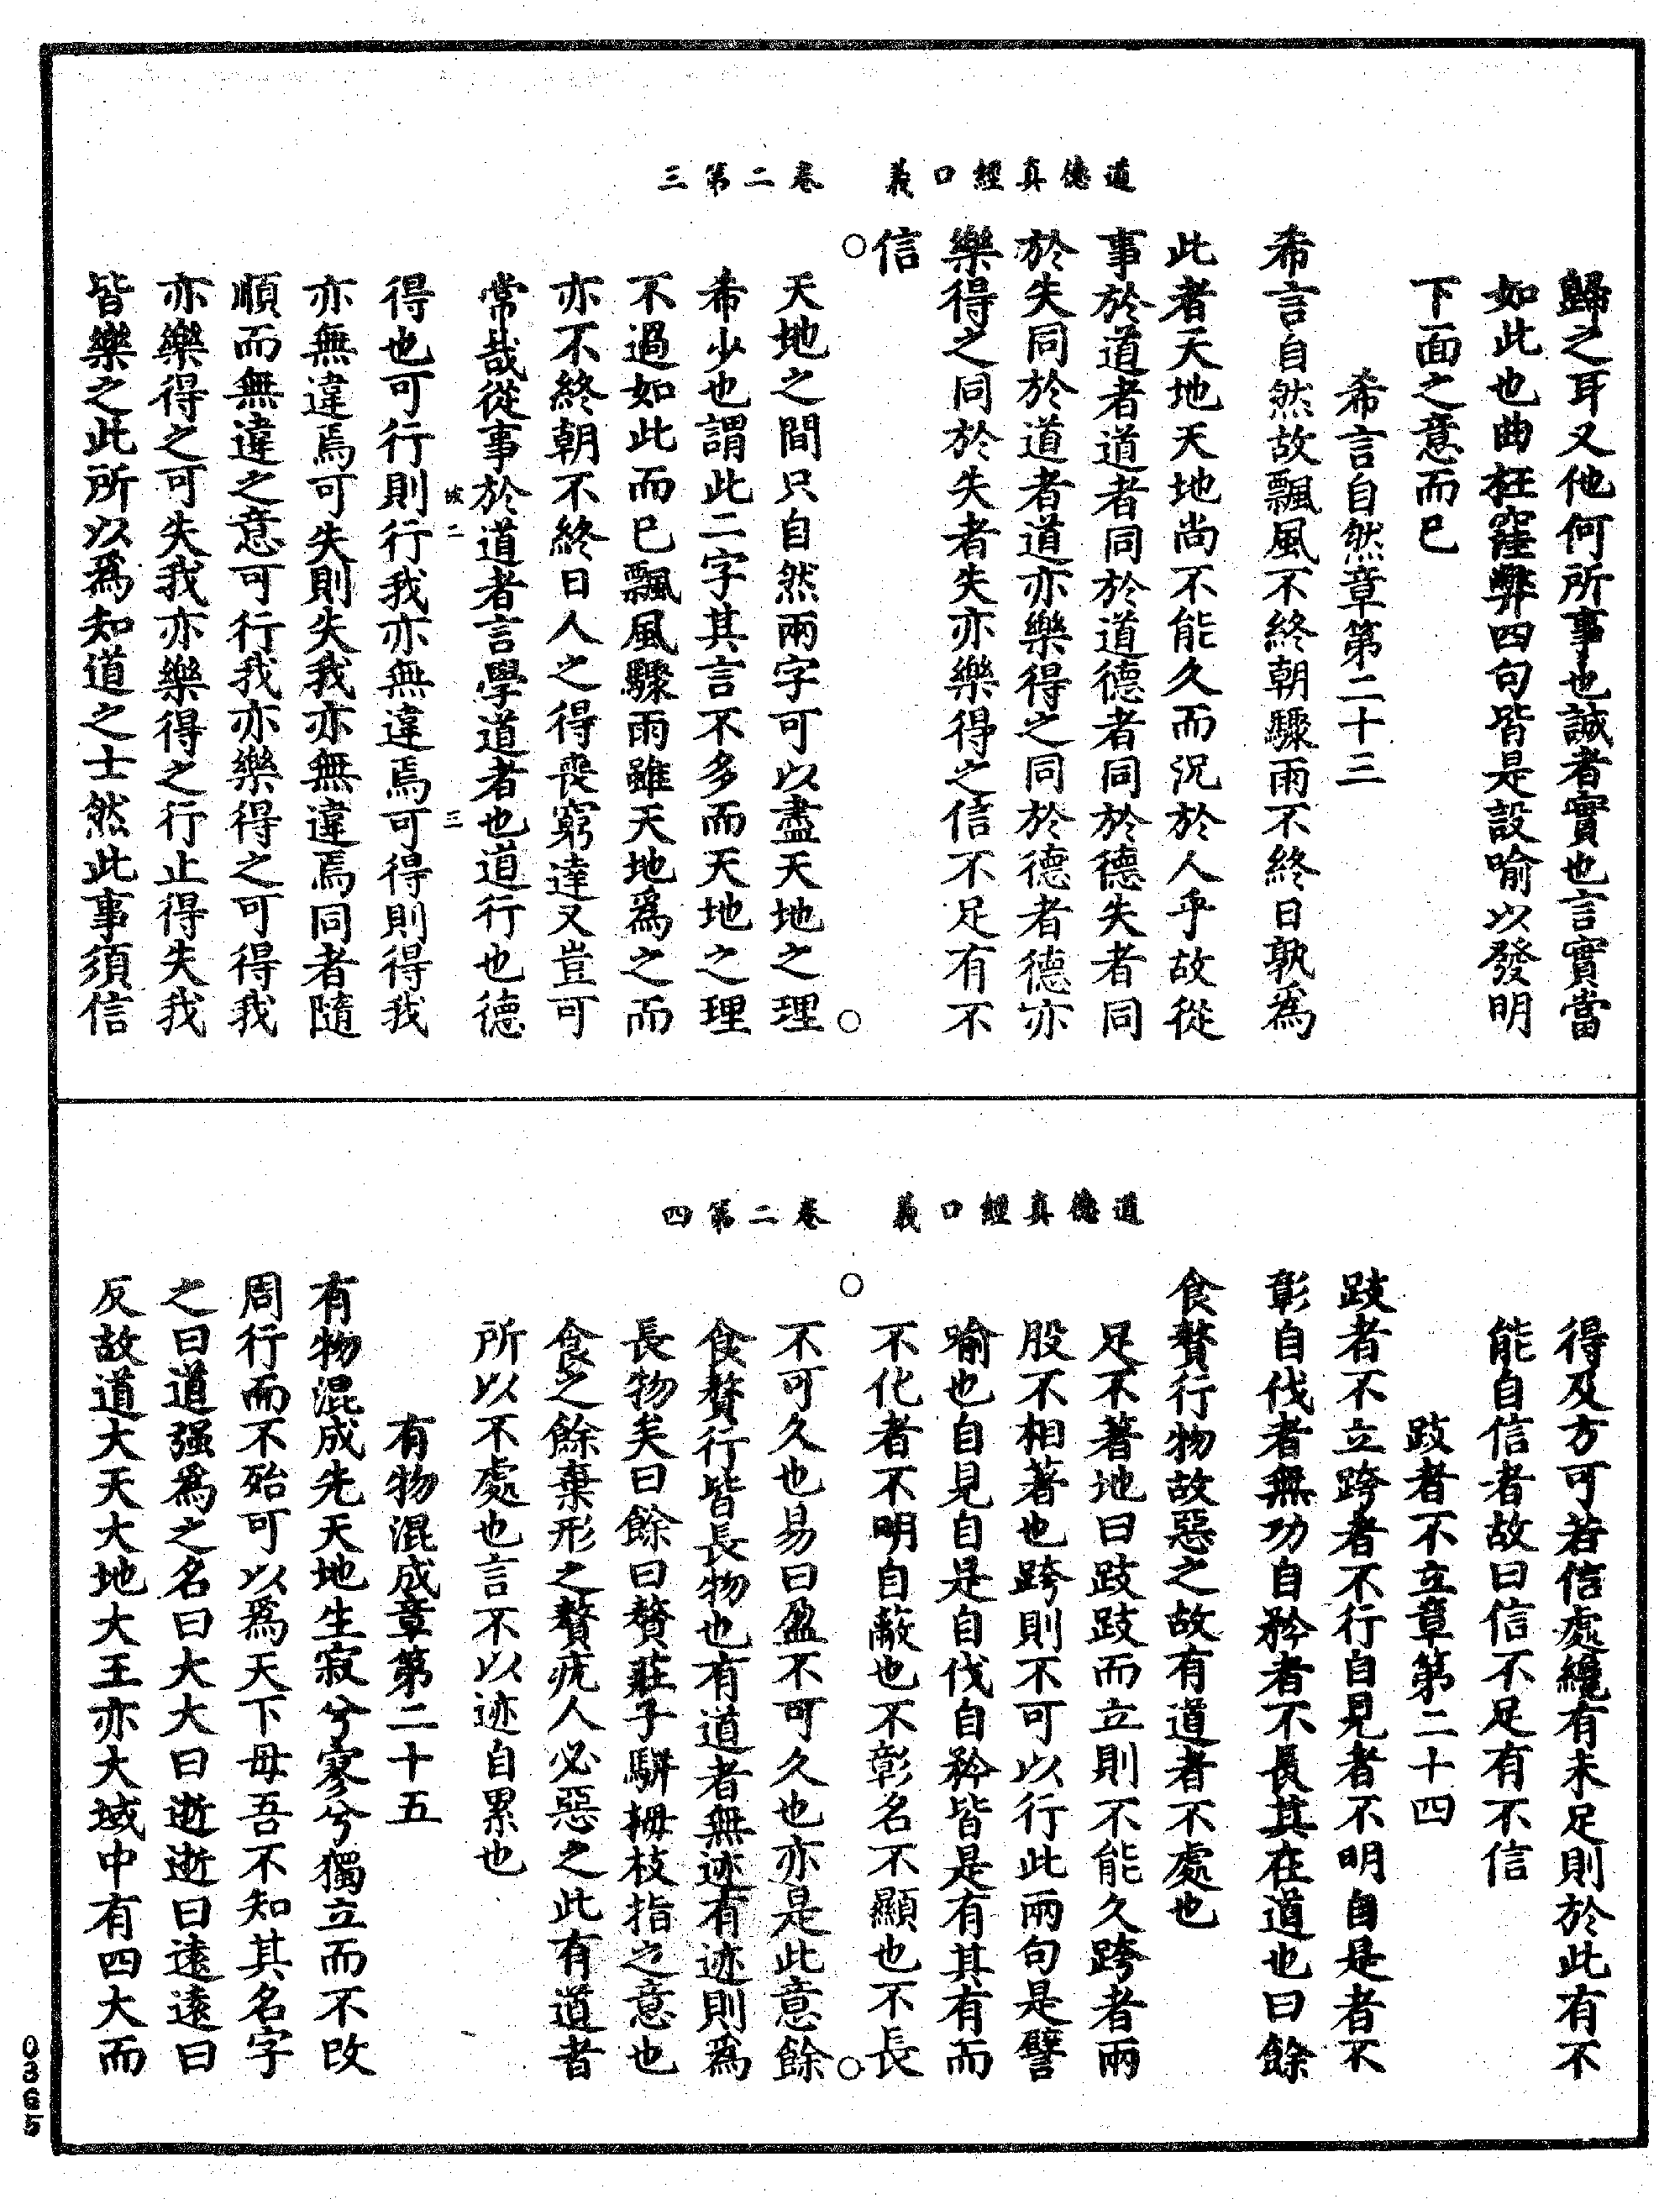 道德真經口義　卷二第三
歸之耳又他何所事也誠者實也言實當
如此也曲枉窪弊四句皆是設喻以發明
下面之意而已
希言自然章第二十三
希言自然故飄風不終朝驟雨不終日孰為
此者天地天地尚不能久而況於人乎故從
事於道者道者同於道德者同於德失者同
於失同於道者道亦樂得之同於德者德亦
樂得之同於失者失亦樂得之信不足有不
信
天地之間只自然兩字可以盡天地之理
希少也謂此二字其言不多而天地之理
不過如此而已飄風驟雨雖天地為之而
亦不終朝不終日人之得喪窮達又豈可
常哉從事於道者言學道者也道行也德
彼二　三
得也可行則行我亦無違焉可得則得我
亦無違焉可失則失我亦無違焉同者隨
順而無違之意可行我亦樂得之可得我
亦樂得之可失我亦樂得之行止得失我
皆樂之此所以為知道之士然此事須信
道德真經口義　卷二第四
得及方可若信處纔有未足則於此有不
能自信者故曰信不足有不信
跂者不立章第二十四
跂者不立跨者不行自見者不明自是者不
彰自伐者無功自矜者不長其在道也曰餘
食贅行物故惡之故有道者不處也
足不著地曰跂跂而立則不能久跨者兩
股不相著也跨則不可以行此兩句是譬
喻也自見自是自伐自矜皆是有其有而
不化者不明自蔽也不彰名不顯也不長
不可久也易曰盈不可久也亦是此意餘
食贅行皆長物也有道者無迹有迹則為
長物矣曰餘曰贅莊子駢拇枝指之意也
食之餘棄形之贅疣人必惡之此有道者
所以不處也言不以迹自累也
有物混成章第二十五
有物混成先天地生寂兮寥兮獨立而不改
周行而不殆可以為天下母吾不知其名字
之曰道强為之名曰大大曰逝逝曰遠遠曰
反故道大天大地大王亦大域中有四大而
0365